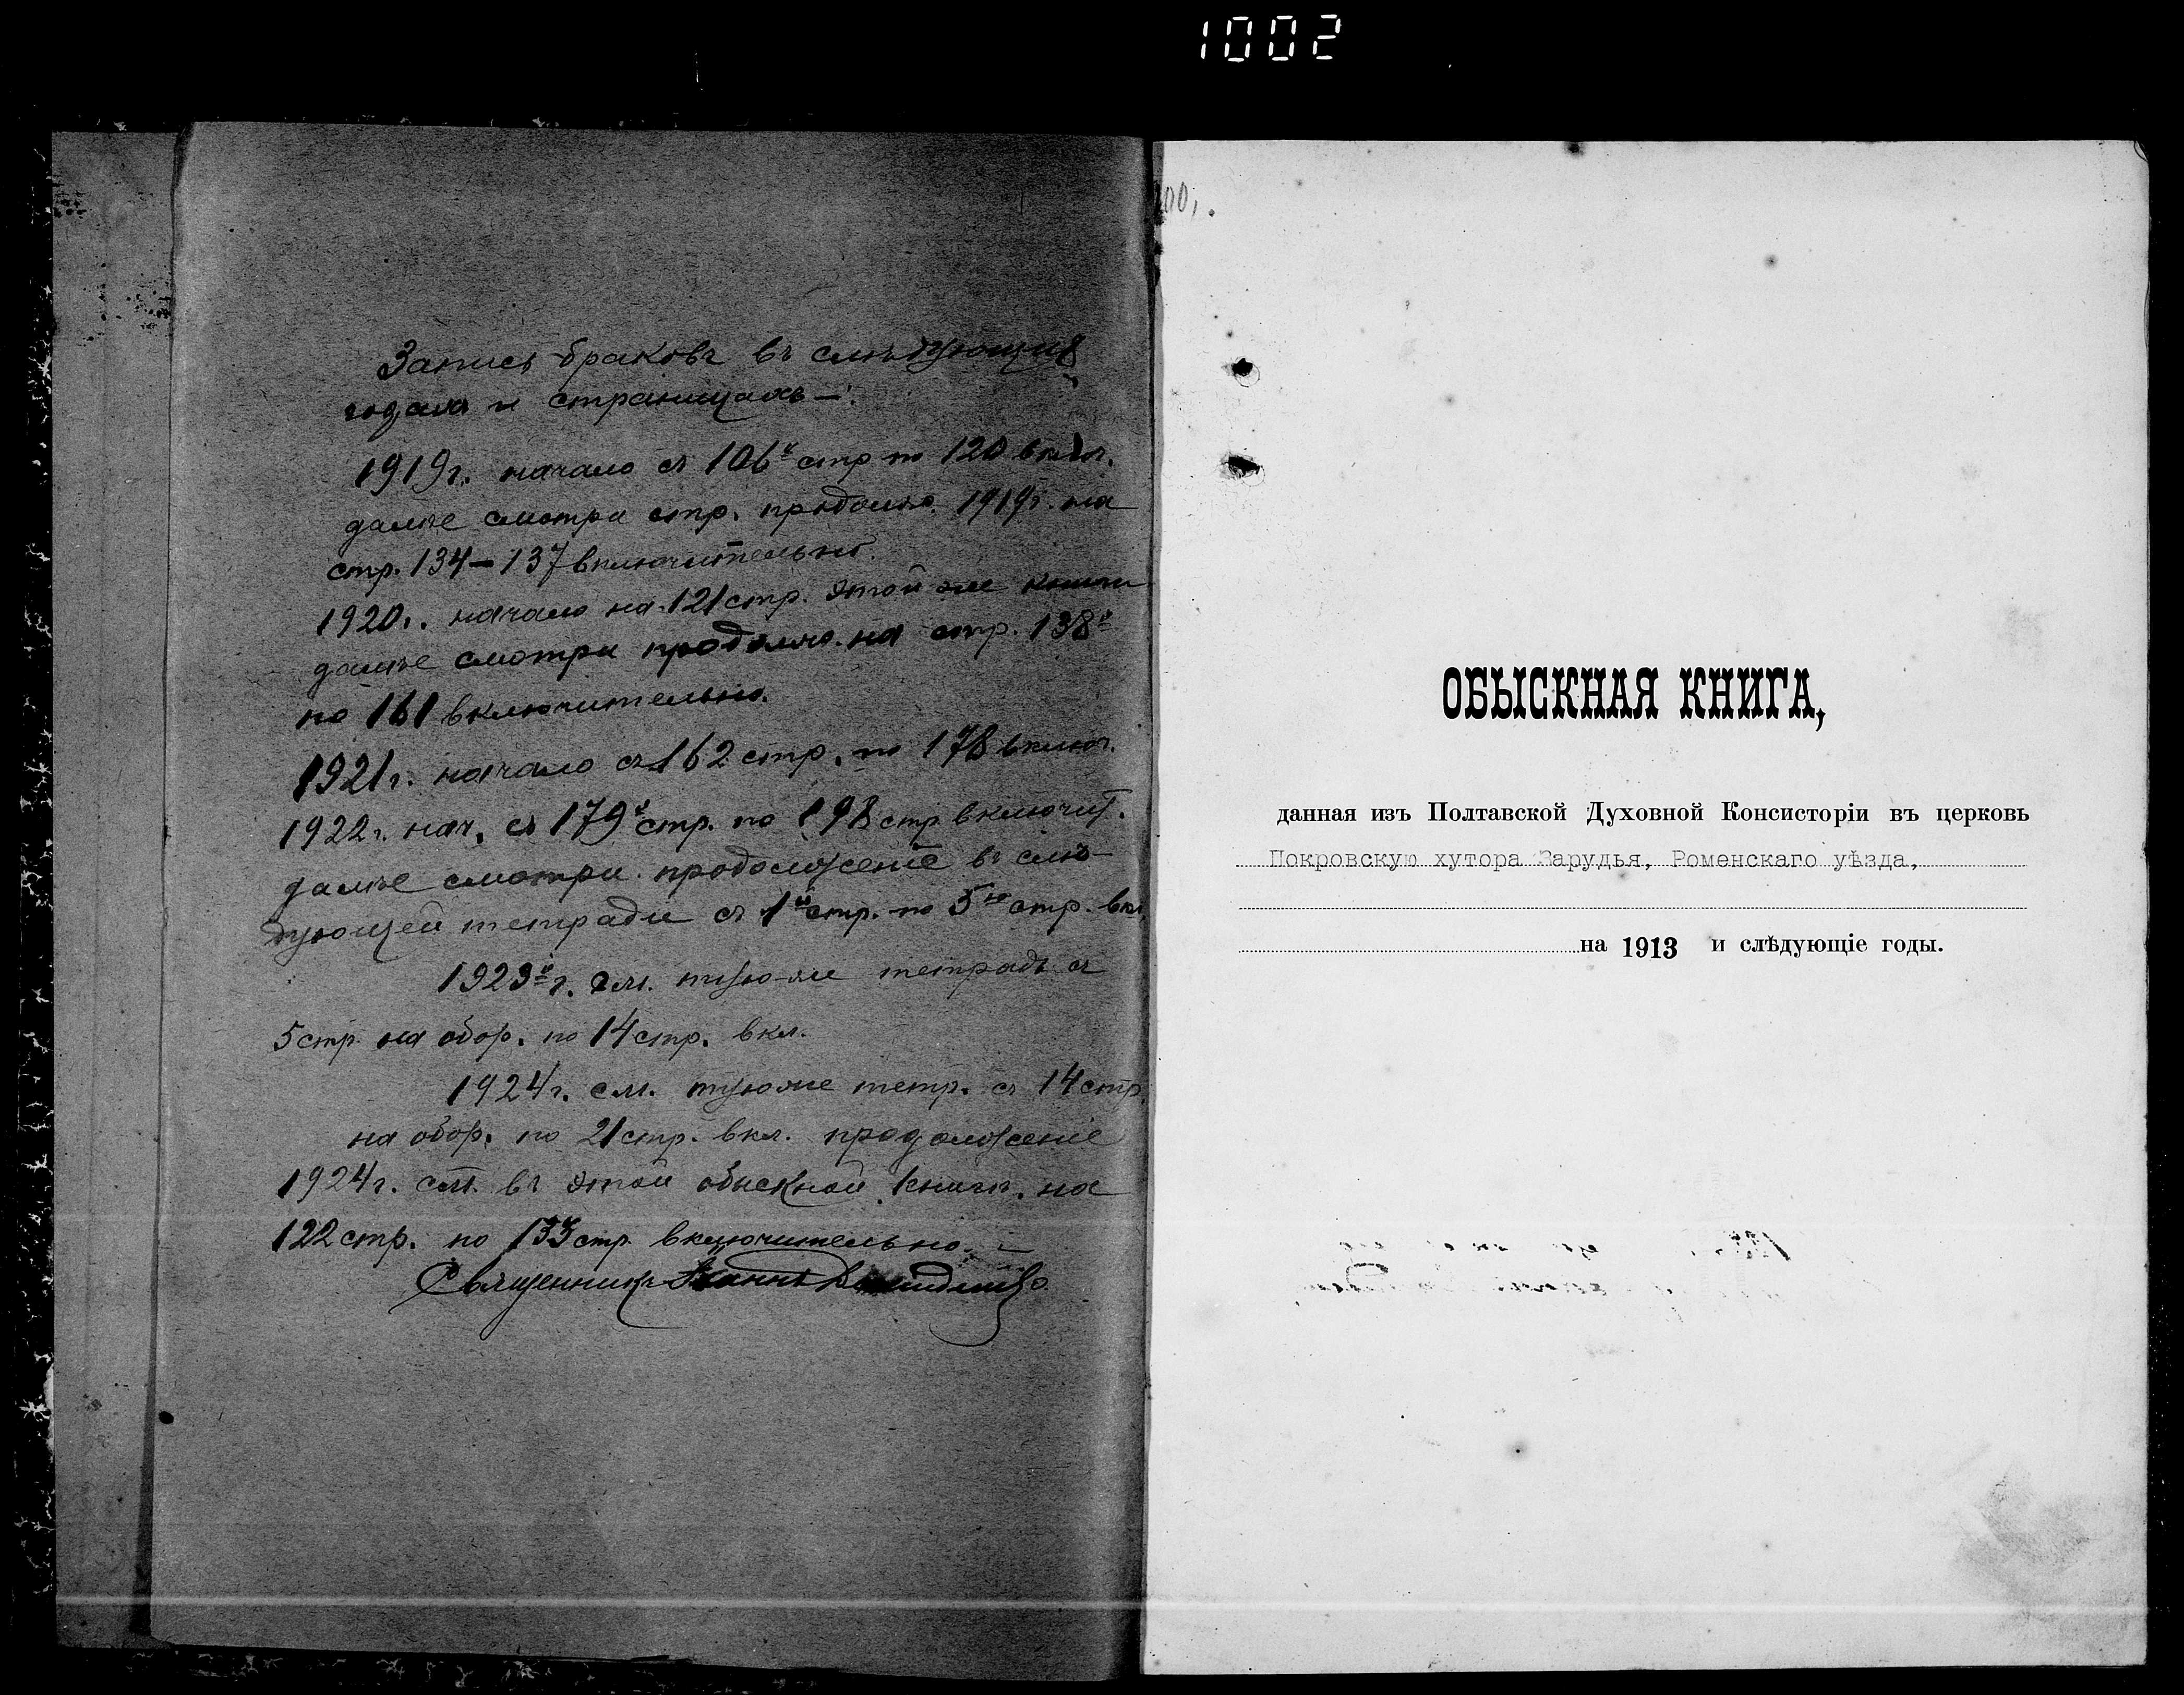 1002
Запись браковъ въ слѣдующия
годахъ и страницахъ —:
1919г. начало съ 106й стр по 120 включ.
далѣе смотри стр. продолж. 1919г. на
стр. 134 – 137 включительно.
1920г. начало на 121 стр. этой же книги
далѣе смотри продолж. на стр. 138й
по 161 включительно.
1921г. начало съ 162 стр. по 178 включ.
1922г. нач. съ 179й стр. по 198 стр включит.
далѣе смотри продолженіе въ слѣ-
дующей тетради съ 1й стр. по 5ю стр. вкл.
1923й г. см. тую-же тетрадь съ
5 стр. на обор. по 14 стр. вкл.
1924г. см. тую же тетр. съ 14 стр.
на обор. по 21 стр. вкл. продолженіе
1924г. см. въ этой обыскной книгѣ на
122 стр. по 133 стр включительно. —
Священникъ Іоаннъ
00,.
ОБЫСКНАЯ КНИГА,
данная изъ Полтавской Духовной Консисторіи въ церковь
Покровскую хутора Зарудья, Роменскаго уѣзда,
на 1913 и слѣдующіе годы.